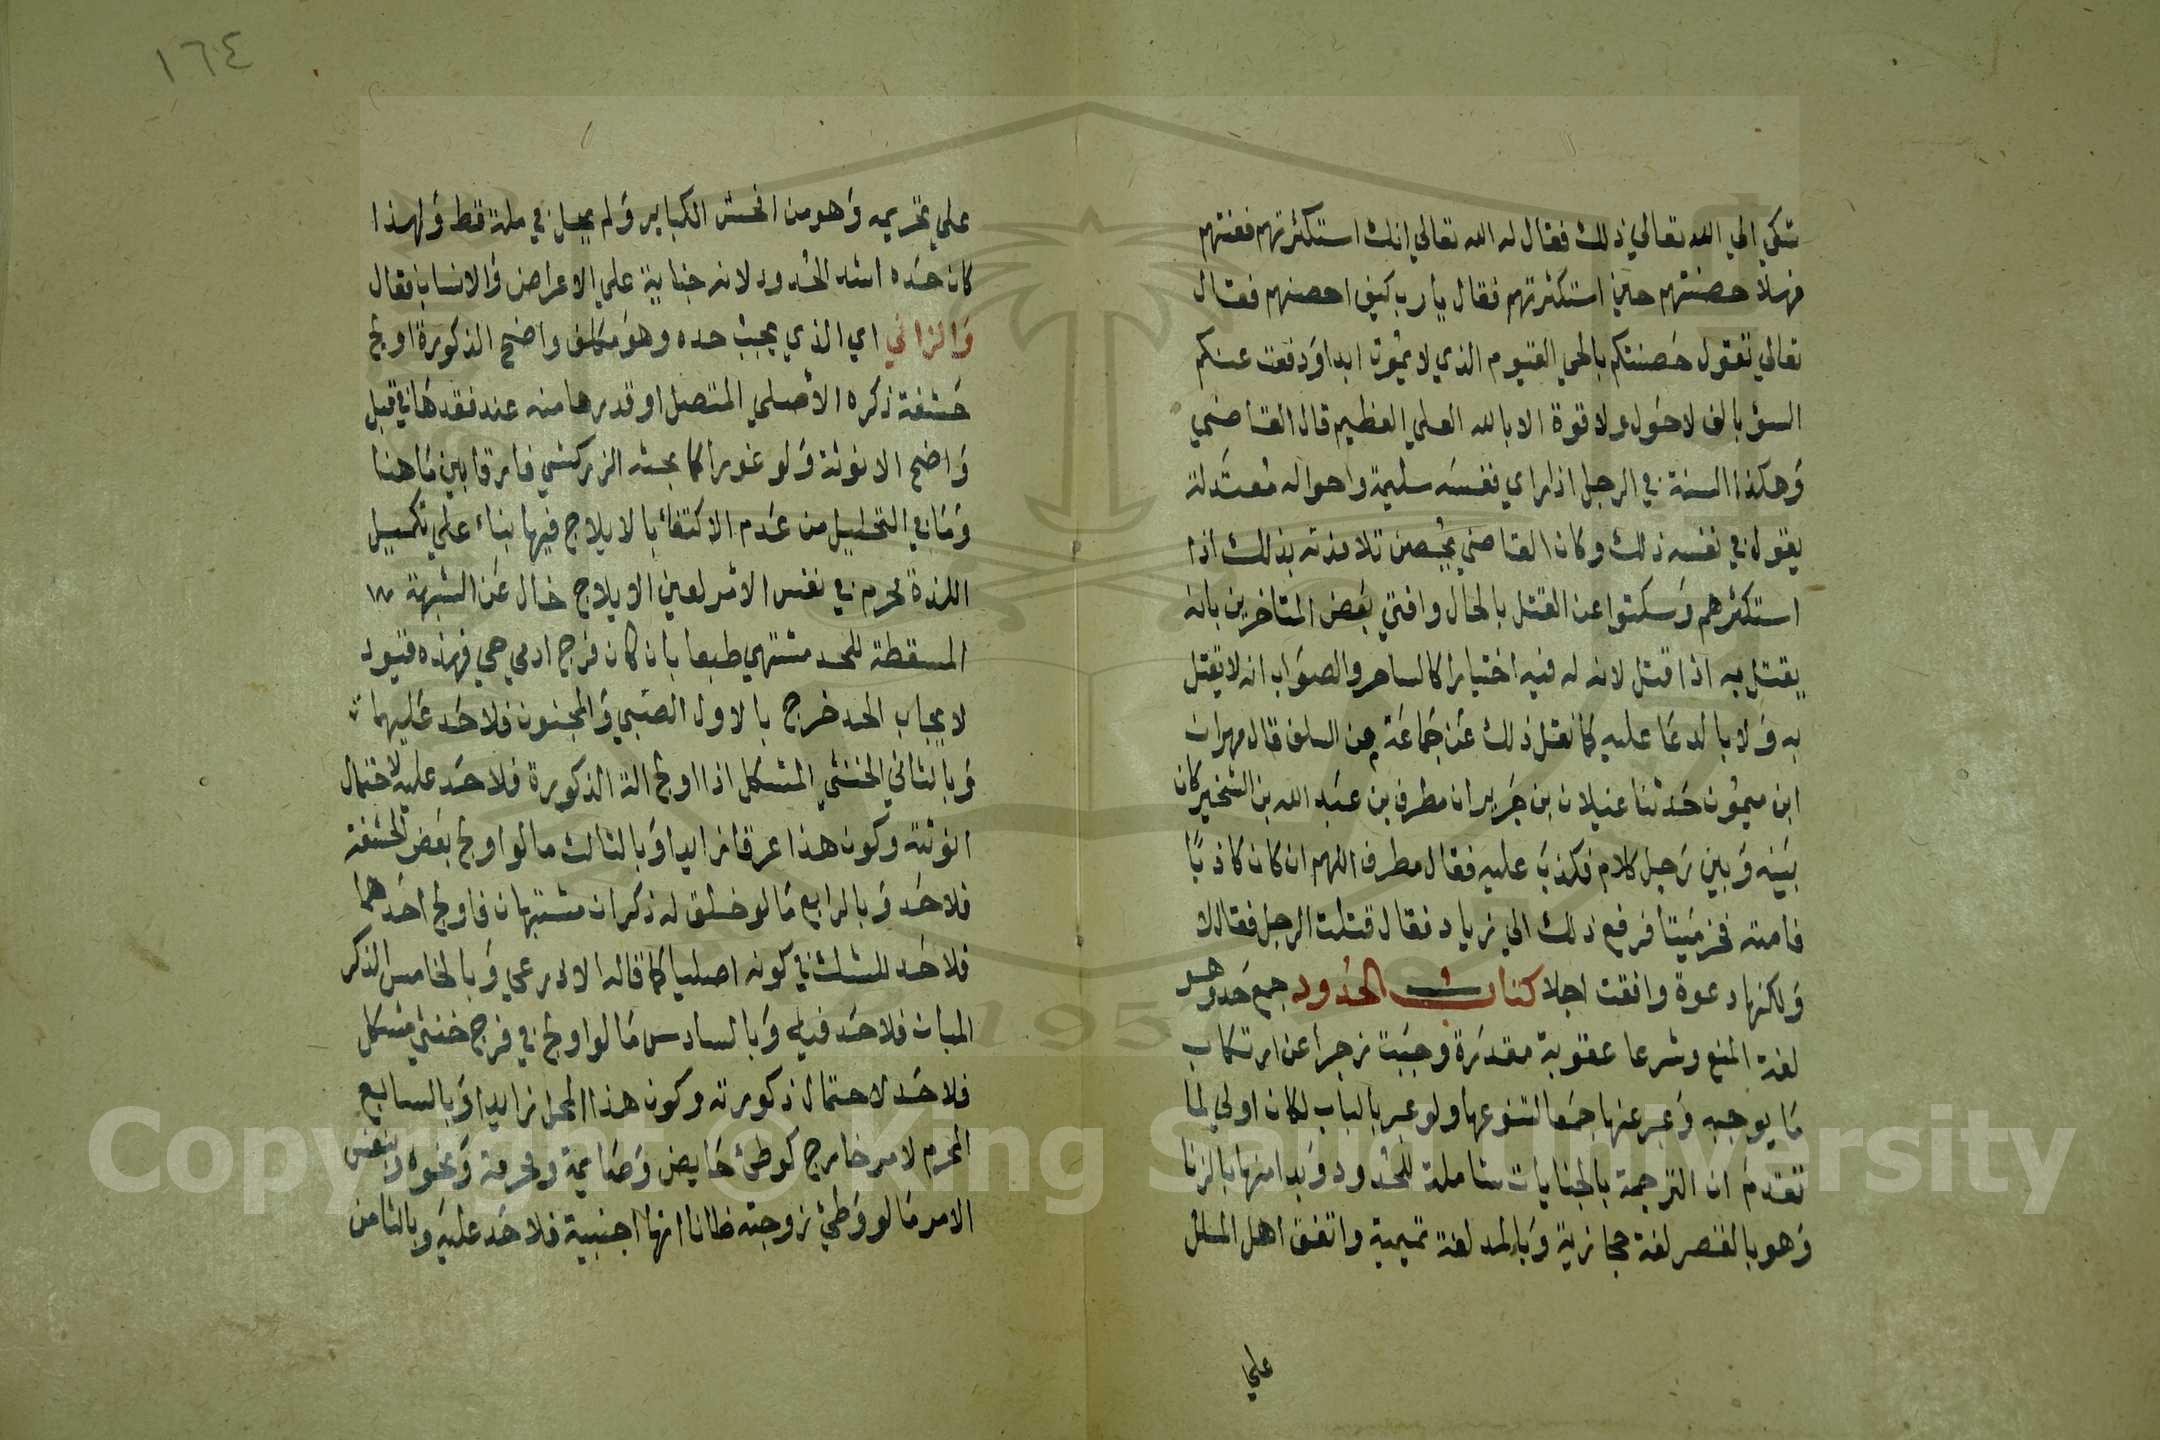 شكي الي الله تعالي ذلك فقال له الله تعالي انك استكثرتهم فعنتهم
فهلا حصنتهم حين استكثرتهم فقال يارب كيف احصنهم فقال
تعالي تقول حصنتكم بالحي القيوم الذي لا يموت ابدا ودفعت عنكم
السؤ بالف لا حول ولا قوة الا بالله العلي العظيم قال القاضي
وهكذا السنة في الرجل اذا راي نفسه سليمة واحواله معتدلة
يقول في نفسه ذلك وكان القاضي يحصن تلامذته بذلك اذا
استكثرهم وسكتوا عن القتل بالحال وافتي بعض المتاخرين بانه
يقتل به اذا قتل لانه له فيه اختيارا كالساحر والصواب انه لا يقتل
به ولا بالدعا عليه كما نقل ذلك عن جماعة من السلف قال مهران
ابن ميمون حدثنا غيلان بن جرير ان مطرف بن عبد الله بن الشخير كان
بينه وبين رجل كلام فكذب عليه فقال مطرف اللهم ان كان كاذبا
فامته فخر ميتا فرفع ذلك الي زياد فقال قتلت الرجل فقال لا
ولكنها دعوة وافقت اجلا كتاب الحدود جمع حد وهو
لغة المنع وشرعا عقوبة مقدرة وجبت زجرا عن ارتكاب
ما يوجبه وعبر عنها جمعا لتنوعها ولو عبر بالباب لكان اولي لما
تقدم ان الترجمة بالجنايات شاملة للحدود وبدا منها بالزنا
وهو بالقصر لغة حجازية وبالمد لغة تميمية واتفق اهل الملل
علي
١٦٤
علي تحريمه وهو من افحش الكباير ولم يحل في ملة قط ولهذا
كان حده اشد الحدود لانه جناية علي الاعراض والانساب فقال
والزاني اي الذي يجب حده وهو مكلف واضح الذكورة اولج
حشفة ذكره الاصلي المتصل او قدرها منه عند فقدها في قبل
واضح الانوثة ولو غورا كما بحثه الزركشي فارقا بين ما هنا
وما في التحليل من عدم الاكتفاء بالايلاج فيها بناء علي تكميل
اللذة محرم في نفس الامر لعين الايلاج خال عن الشبهة
المسقطة للحد مشتهي طبعا بان كان فرج ادمي حي فهذه قيود
لايجاب الحد خرج بالاول الصبي والمجنون فلا حد عليهما
وبالثاني الخنثي المشكل اذا اولج الة الذكورة فلا حد عليه لاحتمال
انوثته وكون هذا عرقا زايدا وبالثالث ما لو اولج بعض الحشفة
فلا حد وبالرابع ما لو خلق له ذكران مشتبهان فاولج احدهما
فلا حد للشك في كونه اصليا كما قاله الاذرعي وبالخامس الذكر
المبان فلا حد فيه وبالسادس ما لو اولج في فرج خنثي مشكل
فلا حد لاحتمال ذكورته وكون هذا المحل زايدا وبالسابع
المحرم لامر خارج كوطئ حايض وصايمة ومحرمة ونحوه وبنفس
الامر ما لو وطئ زوجته ظانا انها اجنبية فلا حد عليه وبالثامن
Copyright © King Saud University
195